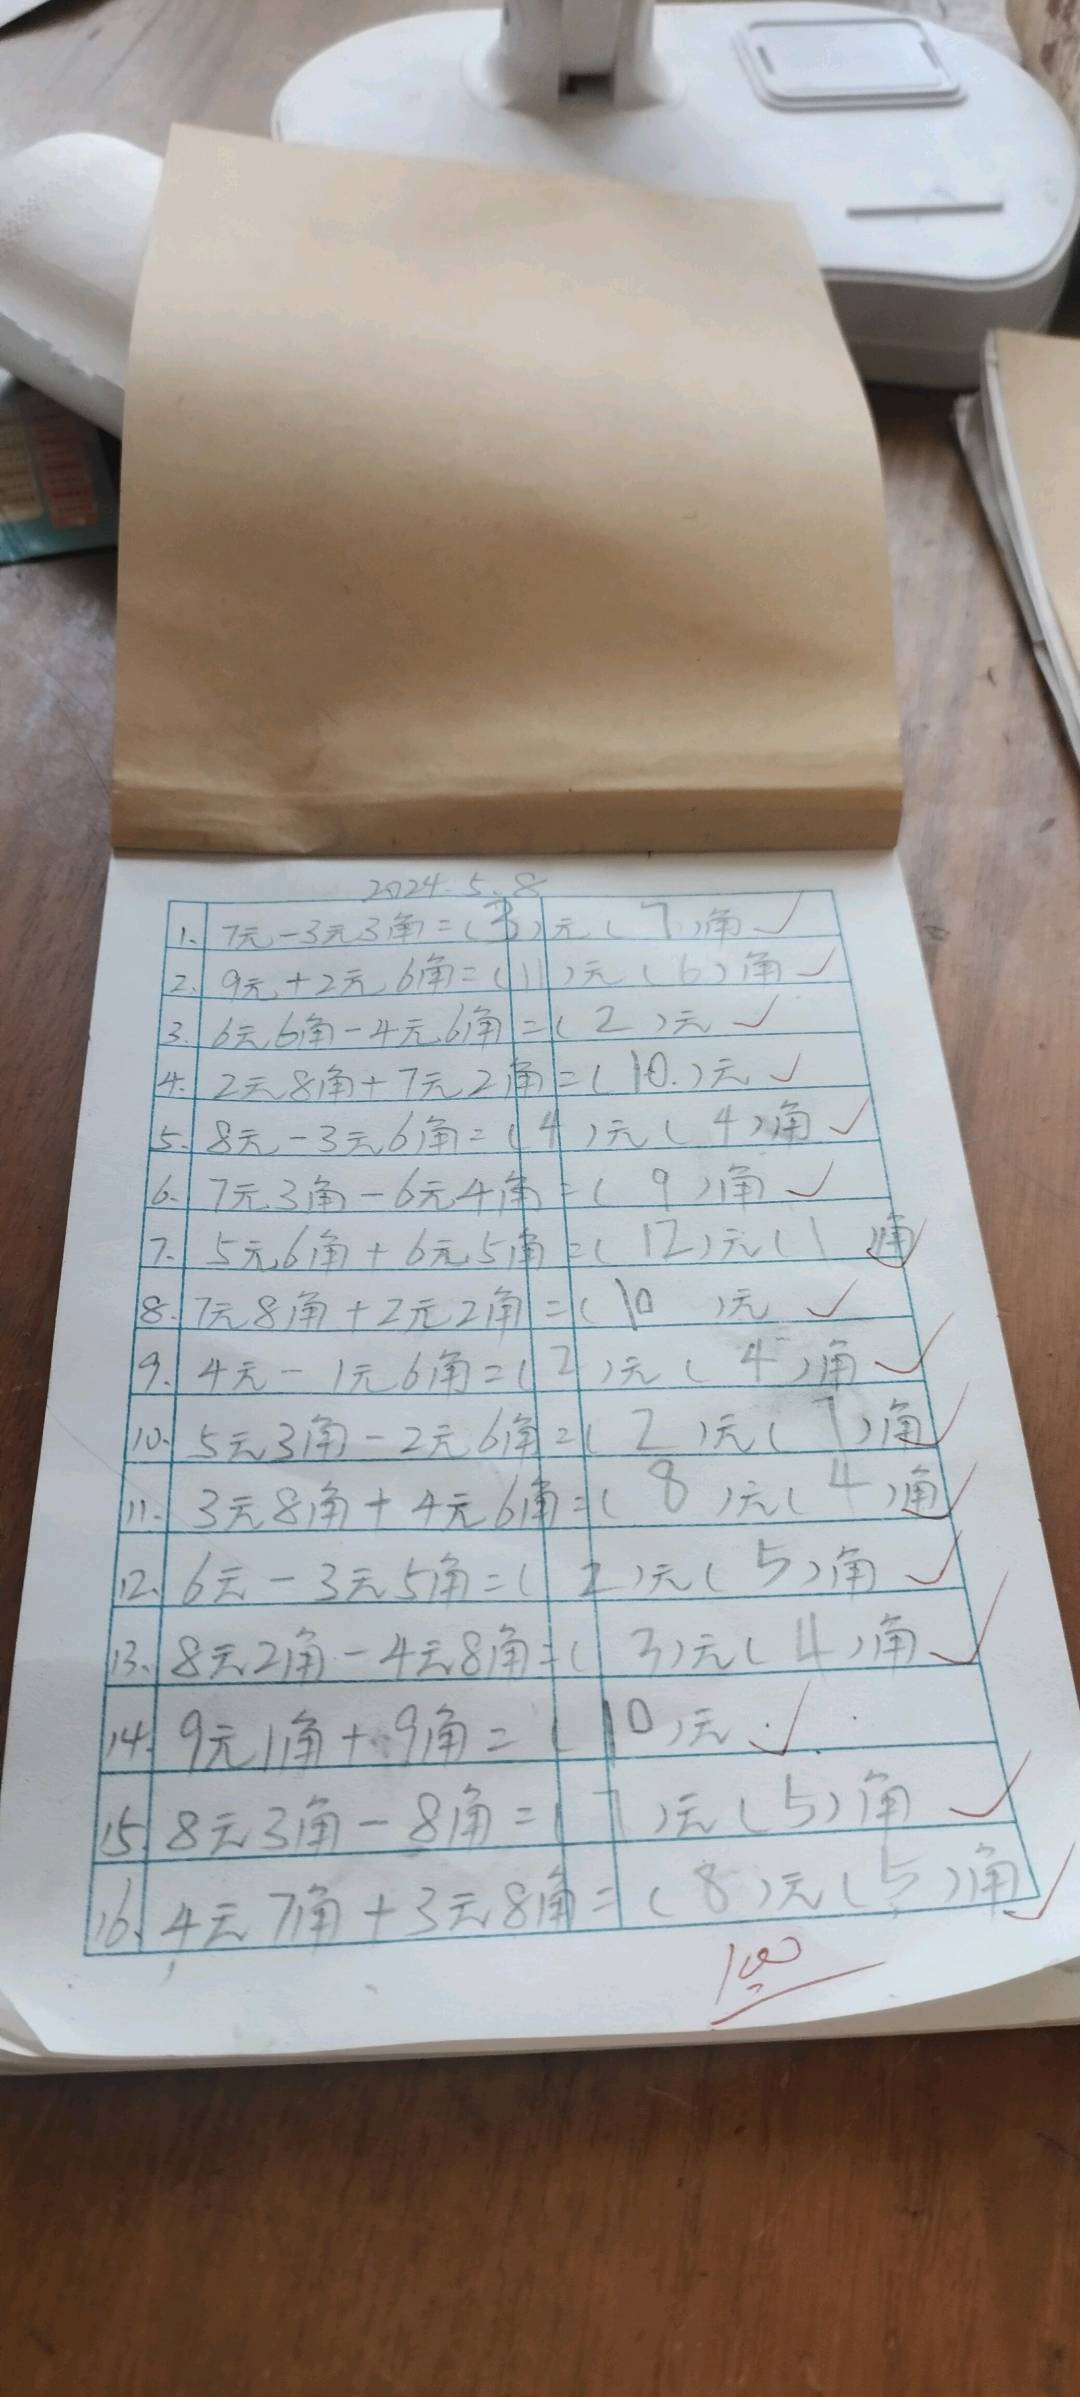 2024.5.8
1. 7元-3元3角=(3)元(7)角
2. 9元+2元6角=(11)元(6)角
3. 6元6角-4元6角=(2)元
4. 2元8角+7元2角=(10)元
5. 8元-3元6角=(4)元(4)角
6. 7元3角-6元4角=(9)角
7. 5元6角+6元5角=(12)元(1)角
8. 7元8角+2元2角=(10)元
9. 4元-1元6角=(2)元(4)角
10. 5元3角-2元6角=(2)元(7)角
11. 3元8角+4元6角=(8)元(4)角
12. 6元-3元5角=(2)元(5)角
13. 8元2角-4元8角=(3)元(4)角
14. 9元1角+9角=(10)元
15. 8元3角-8角=(7)元(5)角
16. 4元7角+3元8角=(8)元(5)角
100